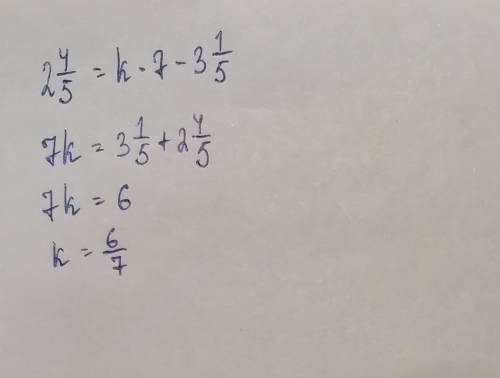 2 4/5 = k · 7 - 3 1/5
7k = 3 1/5 + 2 4/5
7k = 6
k = 6/7